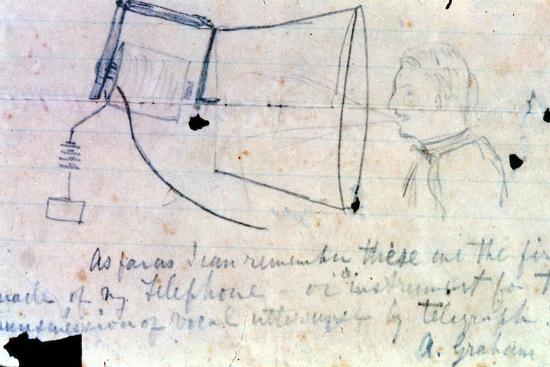 As far as I can remember these are the fir
made of my Telephone - or "instrument for t
ransmission of vocal utterance by telegraph
A. Graham